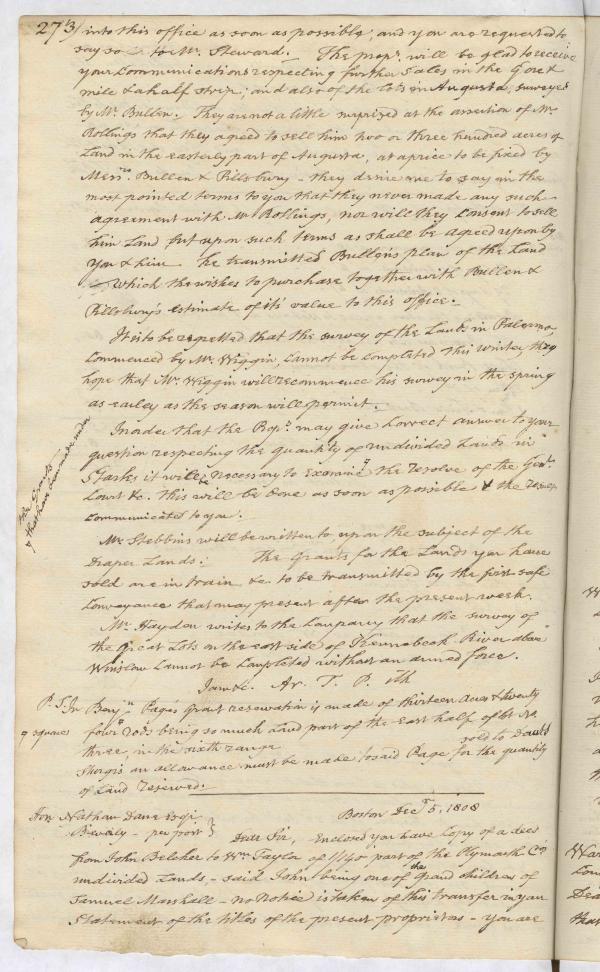 273/ into this office as soon as possible, and you are requested to
say so to Mr. Steward. The propr. will be glad to receive
your communications respecting further Sales in the Gore &
mile & a half strip; and also of the Lots in Augusta, surveyed
by Mr. Bullen. They are not a little surprized at the assertion of Mr.
Rollings that they agreed to sell him two or three hundred acres of
Land in the easterly part of Augusta, at a price to be fixed by
Messrs. Bullen & Pillsbury - they desire me to say in the
most pointed terms to you that they never made any such
agreement with Mr Rollings, nor will they consent to sell
him Land but upon such terms as shall be agreed upon by
you & him he transmitted Bullen's plan of the Land
which he wishes to purchase together with Bullen &
Pillsbury's estimate of its' value to this office.
It is to be regretted that the survey of the Lands in Palermo,
commenced by Mr. Wiggin, cannot be completed this winter, they
hope that Mr. Wiggin will recommence his survey in the spring
as earley as the season will permit.
In order that the Propr. may give correct answer to your
question respecting the quantity of undivided Lands in
Starks it will be necessary to Examine the resolve of the Genl.
the Grants
& that have been made under
Court &c. this will be done as soon as possible & the result
communicated to you.
Mr. Stebbins will be written to upon the subject of the
Draper Lands: The Grants for the Lands you have
sold are in train, &c. to be transmitted by the first safe
conveyance that may present after the present week.
Mr. Haydon writes to the Company that the survey of
the great Lots on the east side of Kennebeck River above
Winslow cannot be completed without an armed force.
I am &c. Ar. T. P. Clk
P. S. In Benjn. Page's grant reservation is made of thirteen acres & twenty
four square rods being so much Land part of the east half of lot No.
three, in the sixth range sold to David
Sturgis an allowance must be made to said Page for the quantity
of Land reserved.
Hon Nathan Dane Esqr.
Beverly - per post
Boston Decr. 5, 1808
Dear Sir, Enclosed you have copy of a deed
from John Belcher to Wm Taylor of 1/140 part of the Plymouth Co.
undivided Lands, - said John being one of the grand children of
Samuel Marshall - no notice is taken of this transfer in your
Statement of the titles of the present proprietors - you are